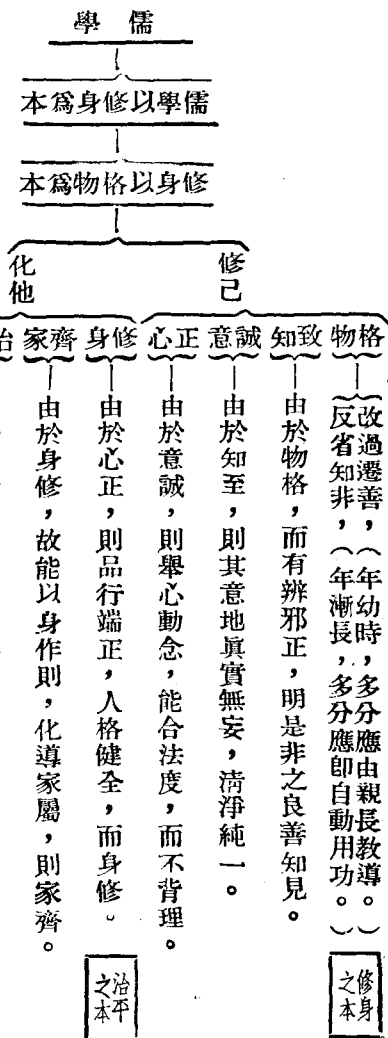 儒學
儒學以修身爲本
修身以格物爲本
修己
化他
格物
改過遷善，（年幼時，多分應由親長教導。）
反省知非，（年漸長，多分應卽自動用功。）
修身之本
致知
由於物格，而有辨邪正，明是非之良善知見。
誠意
由於知至，則其意地眞實無妄，清淨純一。
正心
由於意誠，則舉心動念，能合法度，而不背理。
修身
由於心正，則品行端正，人格健全，而身修。
治平之本
齊家
由於身修，故能以身作則，化導家屬，則家齊。
治